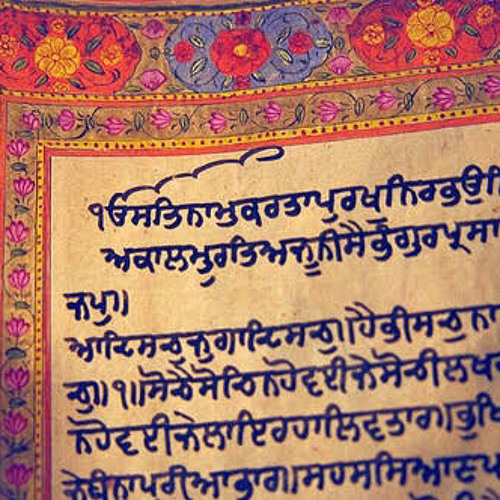 ੴਸਤਿਨਾਮੁਕਰਤਾਪੁਰਖੁਨਿਰਭਉਨਿ
ਅਕਾਲਮੂਰਤਿਅਜੂਨੀਸੈਭੰਗੁਰਪ੍ਰਸਾ
ਜਪੁ॥
ਆਦਿਸਚੁਜੁਗਾਦਿਸਚੁ॥ਹੈਭੀਸਚੁਨਾ
ਚੁ॥੧॥ਸੋਚੈਸੋਚਿਨਹੋਵਈਜੇਸੋਚੀਲਖ
ਨਹੋਵਈਜੇਲਾਇਰਹਾਲਿਵਤਾਰ॥ਭੁਖਿ
ਜੇਬੰਨਾਪੁਰੀਆਭਾਰ॥ਸਹਸਸਿਆਣਪ